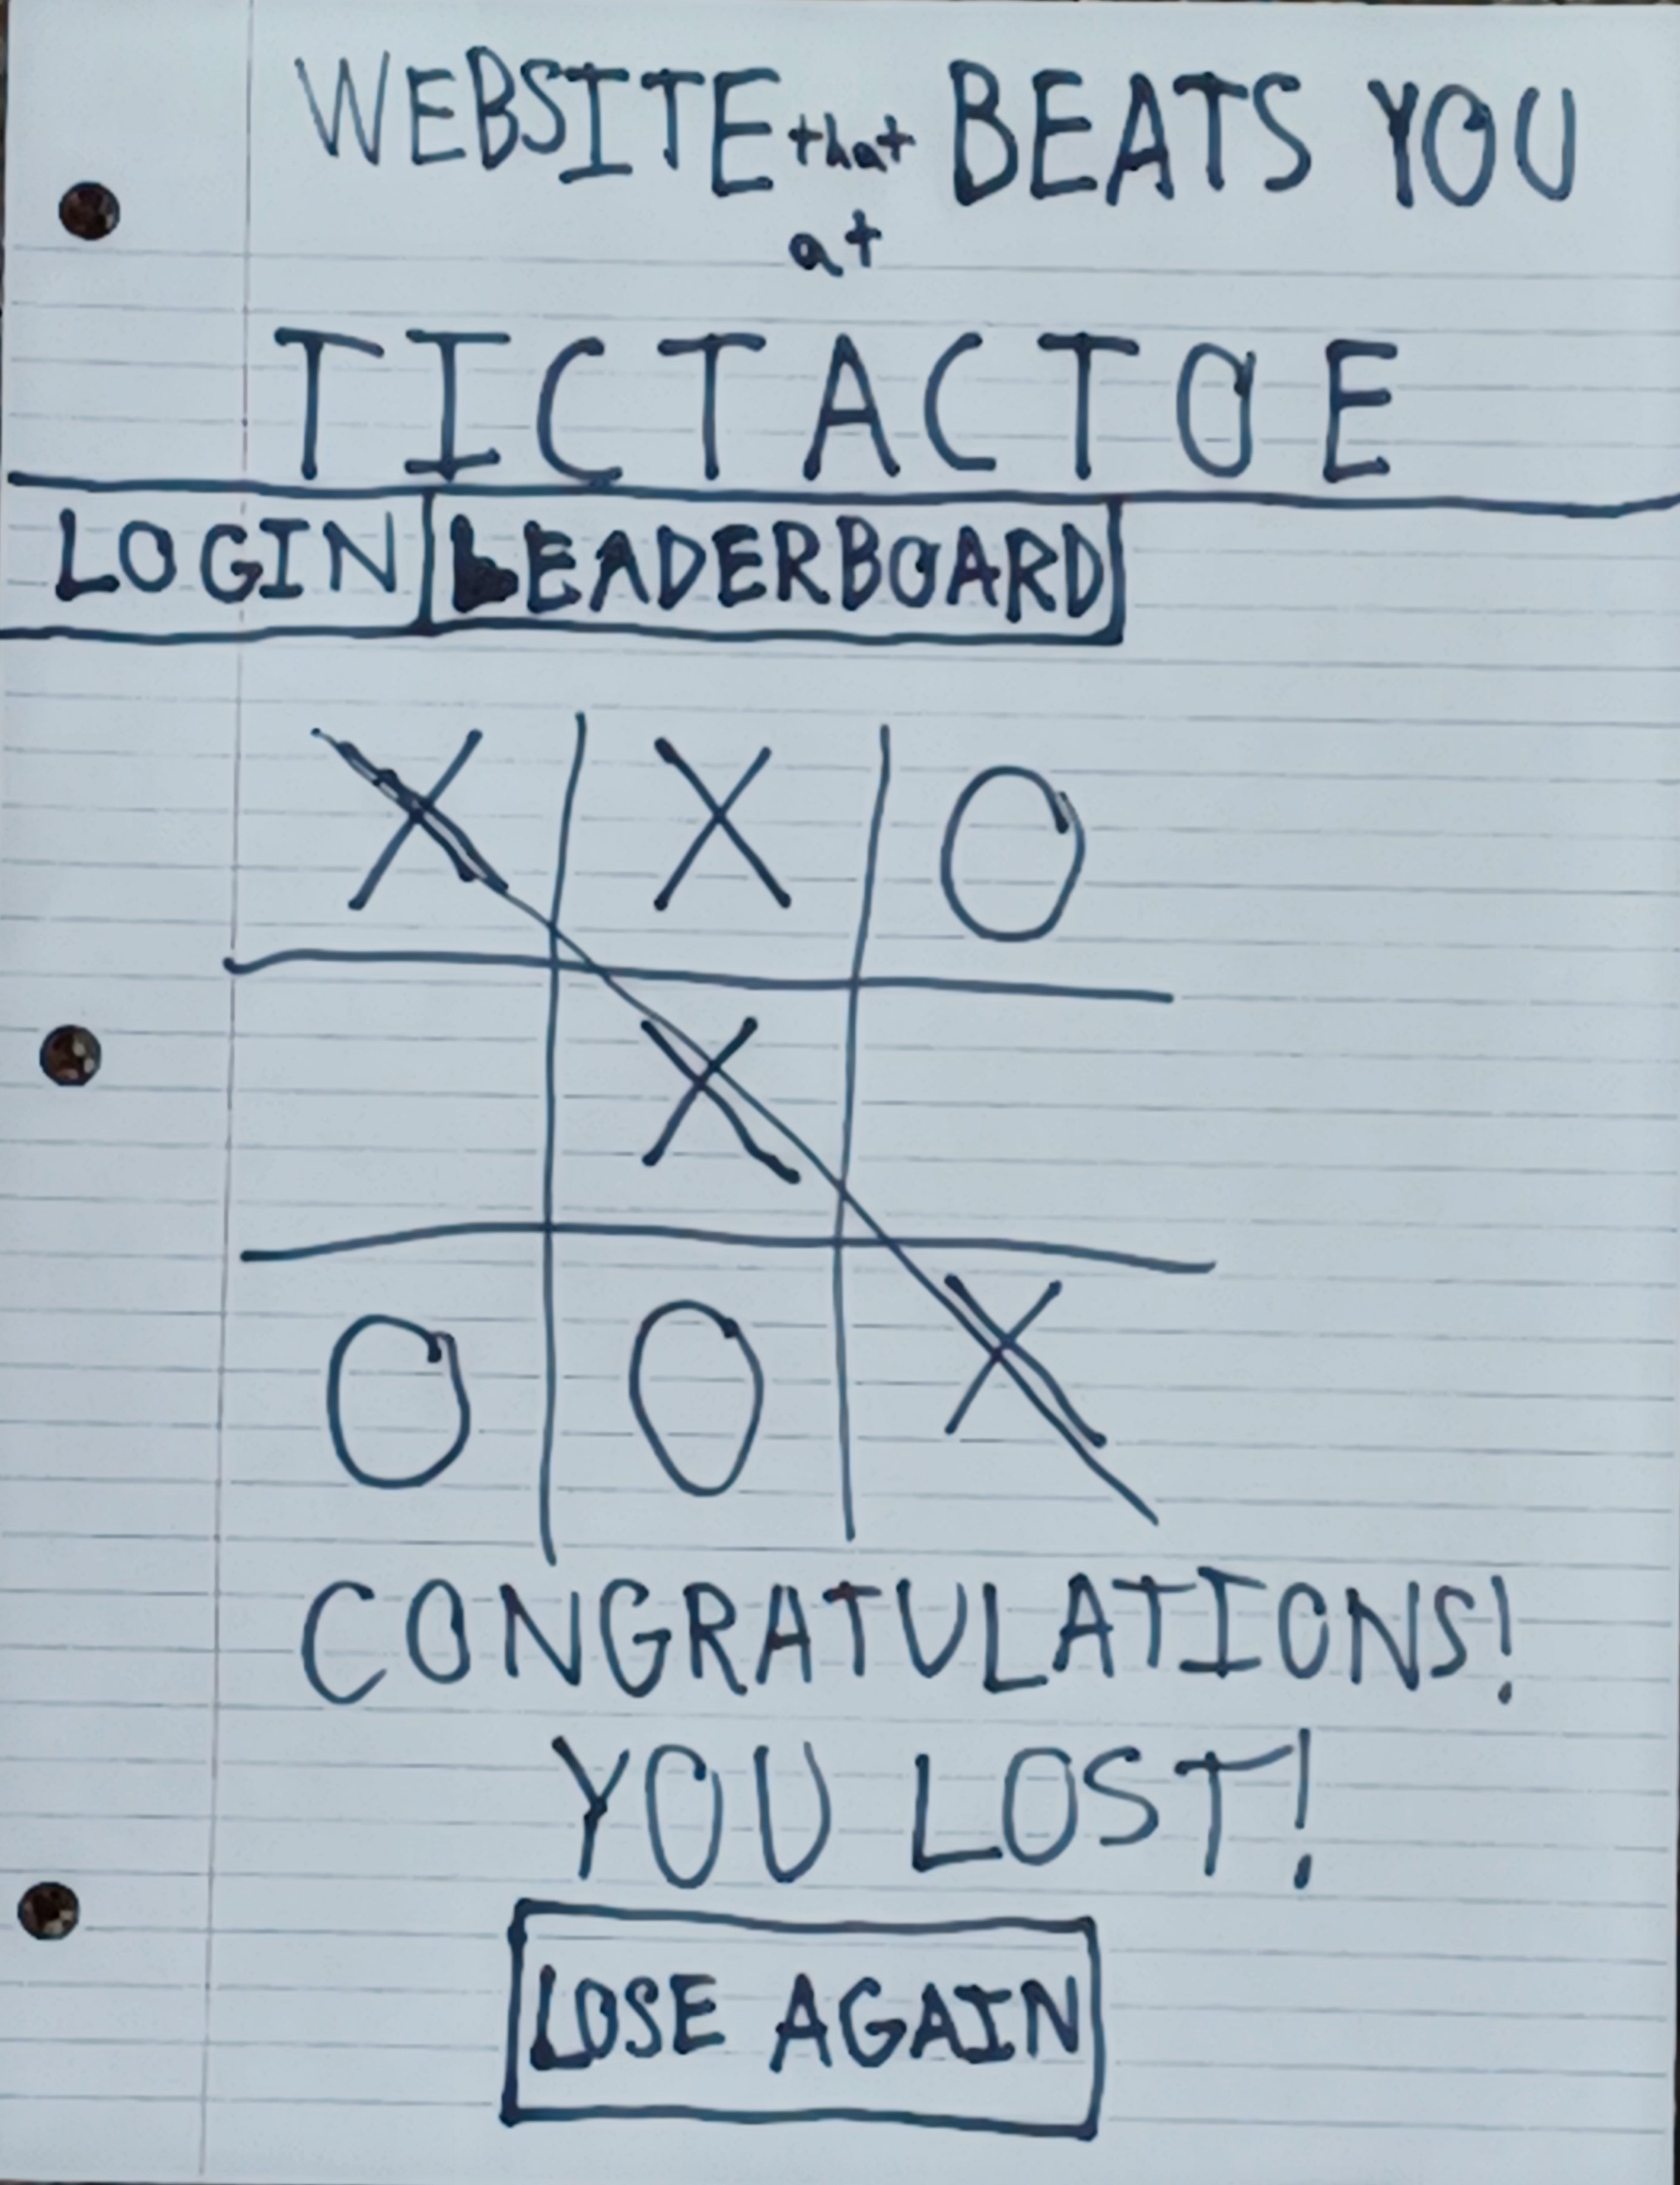 WEBSITE that BEATS YOU
at
TICTACTOE
LOGIN LEADERBOARD
X X O
X
O O X
CONGRATULATIONS!
YOU LOST!
LOSE AGAIN